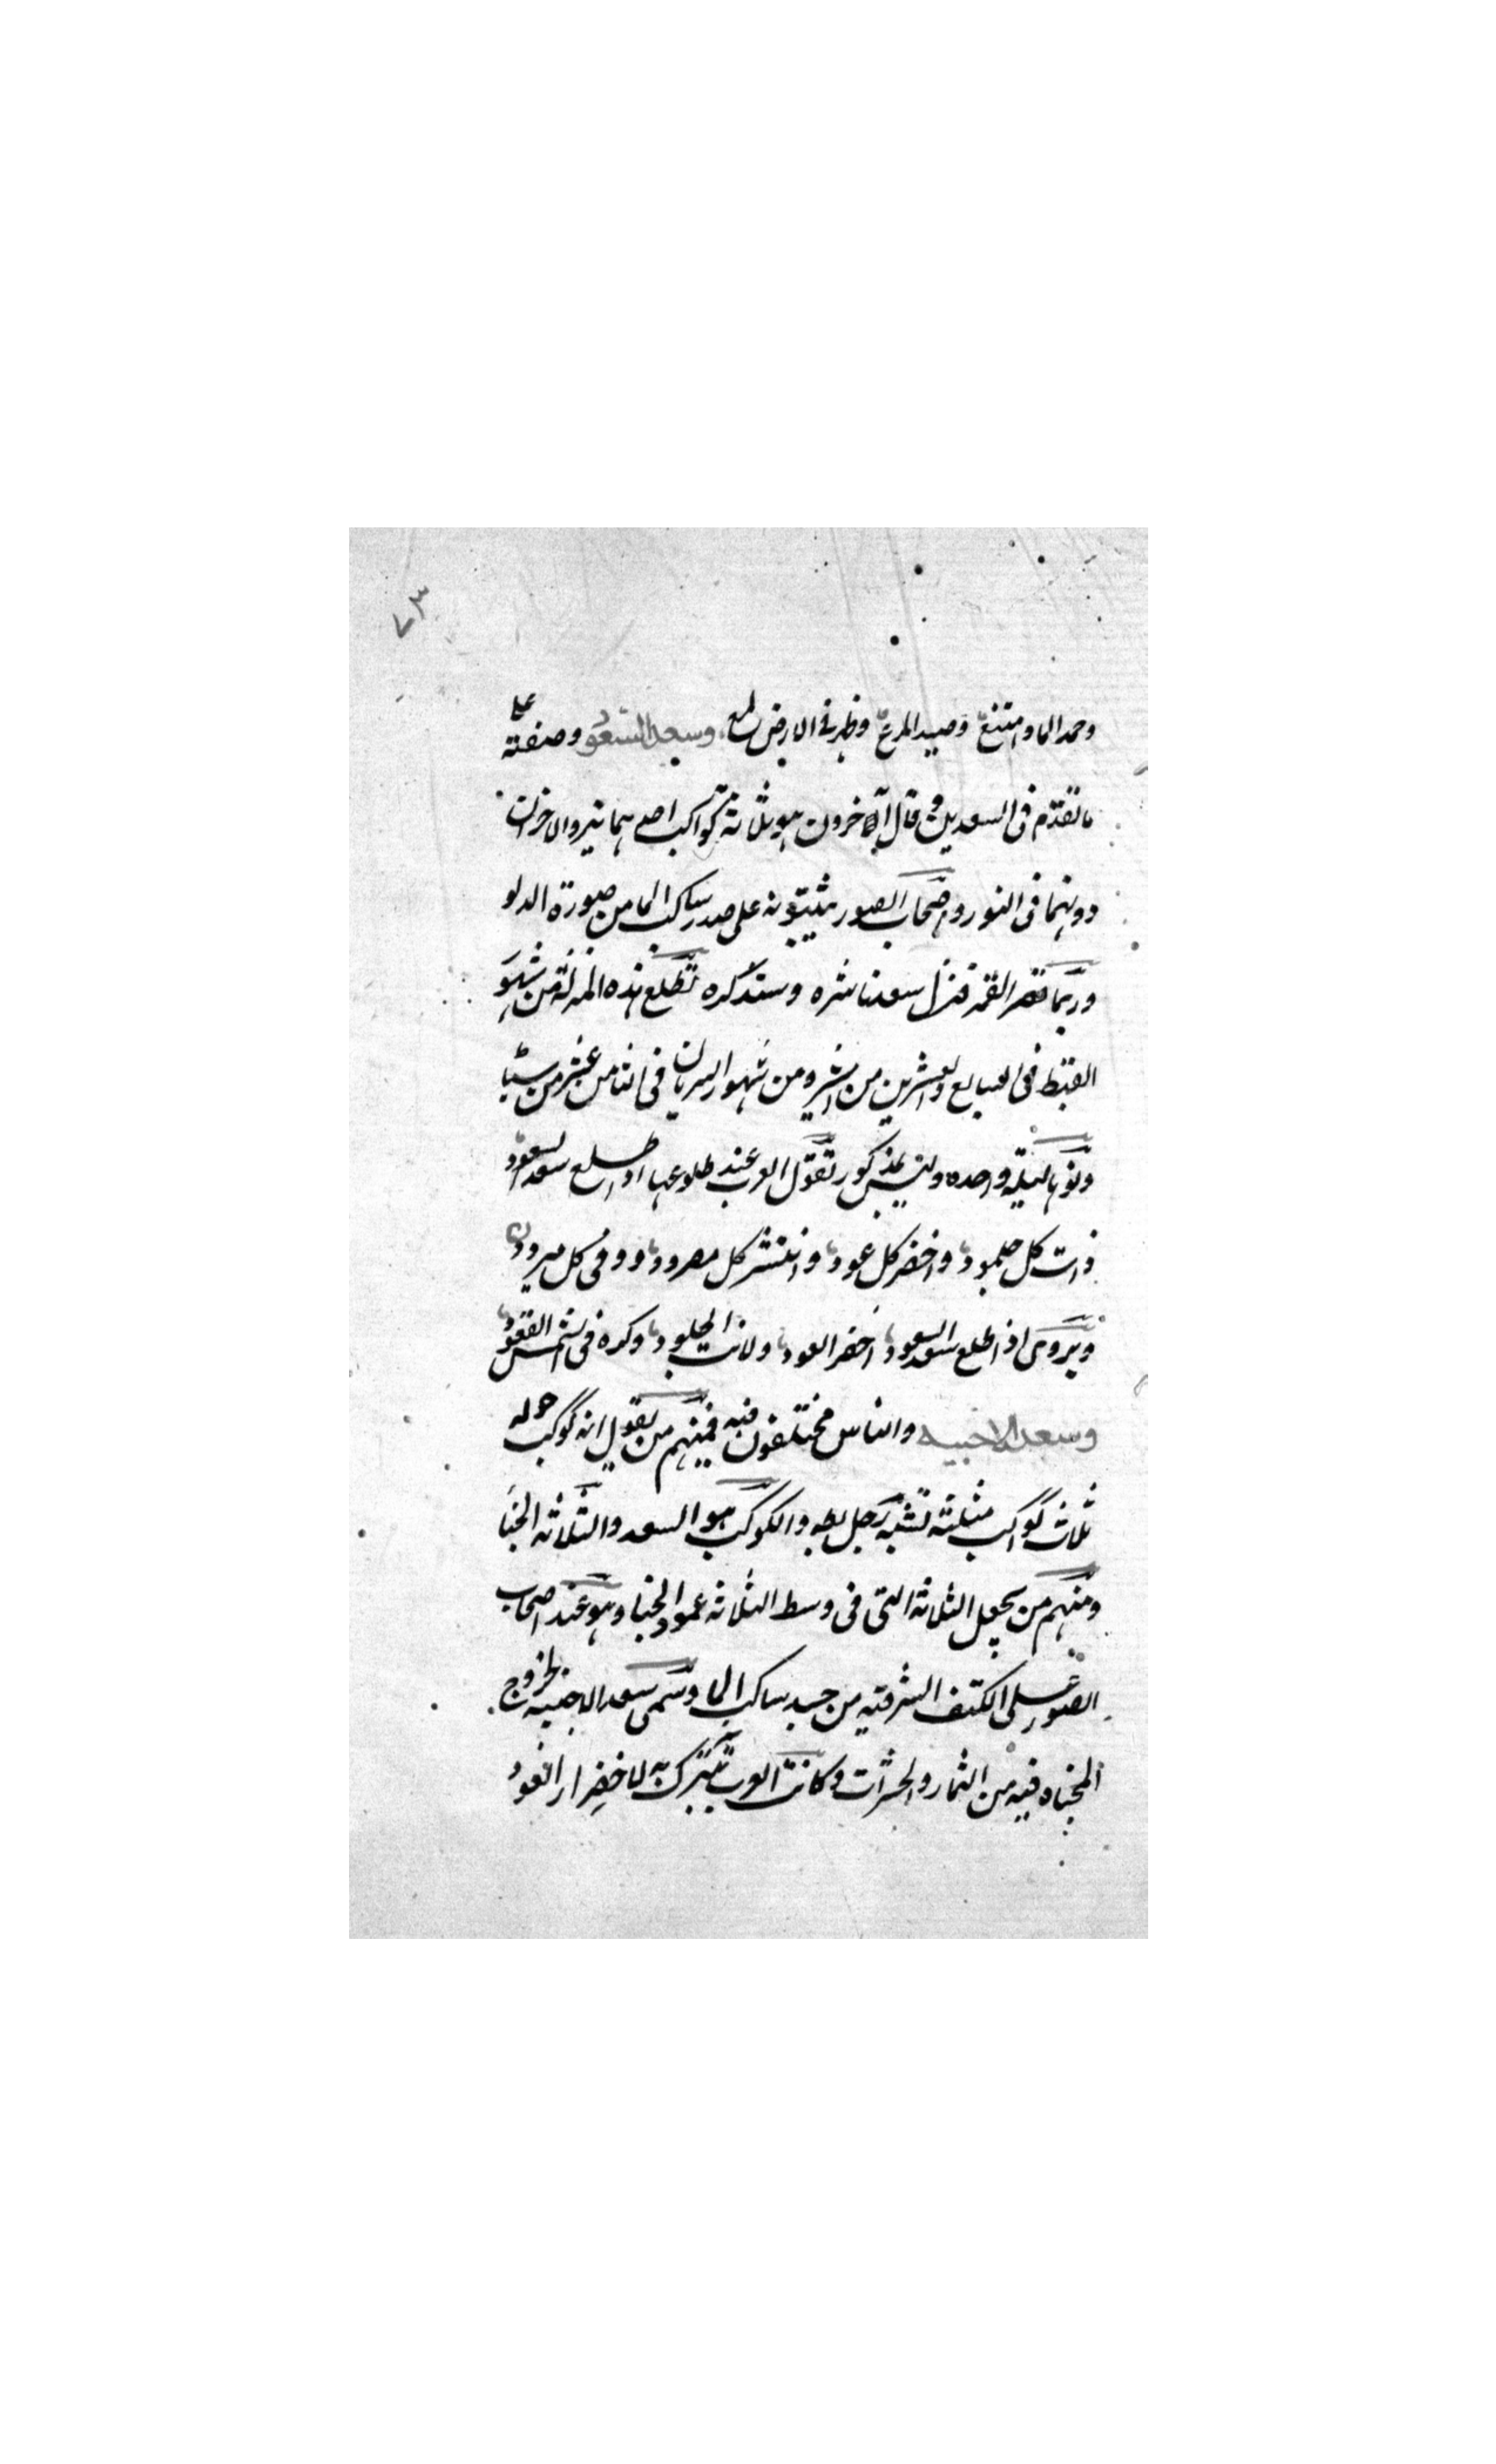 ٧٣
وجمد الما وامتنع وصيد المرع وظهر فى الارض لمع وسعد السعود وصفته على
ما تقدم فى السعدين وقال الاخرون هو ثلاثة كواكب احدهما نير والاخران
دونهما فى النور واصحاب الصور يثبتونه على صدر ساكب الما من صورة الدلو
وربما قصر القمر فنزل سعد ناشره وستذكره تطلع هذه المنزلة من شهور
القبط فى السابع والعشرين من امشير ومن شهور السريان فى الثامن عشر من شباط
ونوءها ليلة واحده وليس بمذكور تقول العرب عند طلوعها اذا طلع سعد السعود
ذابت كل جلمود واخضر كل عود وانتشر كل مصرود وفى كل مبرود
ويروى اذا طلع سعد السعود اخضر العود ولانت الجلود وكره فى الشمس القعود
وسعد الاخبيه والناس مختلفون فيه فمنهم من يقول انه كوكب حوله
ثلاث كواكب مثلثة تشبه رجل بطه والكوكب هو السعد والثلاثه الخبا
ومنهم من يجعل الثلاثه التى فى وسط الثلاثه عمود الخبا وهو عند اصحاب
الصور على الكتف الشرقيه من جسد ساكب الما وسمى سعد الاخبيه لخروج
المخباه فيه من الثمار والحشرات وكانت العرب تتبرك به لاخضرار العود